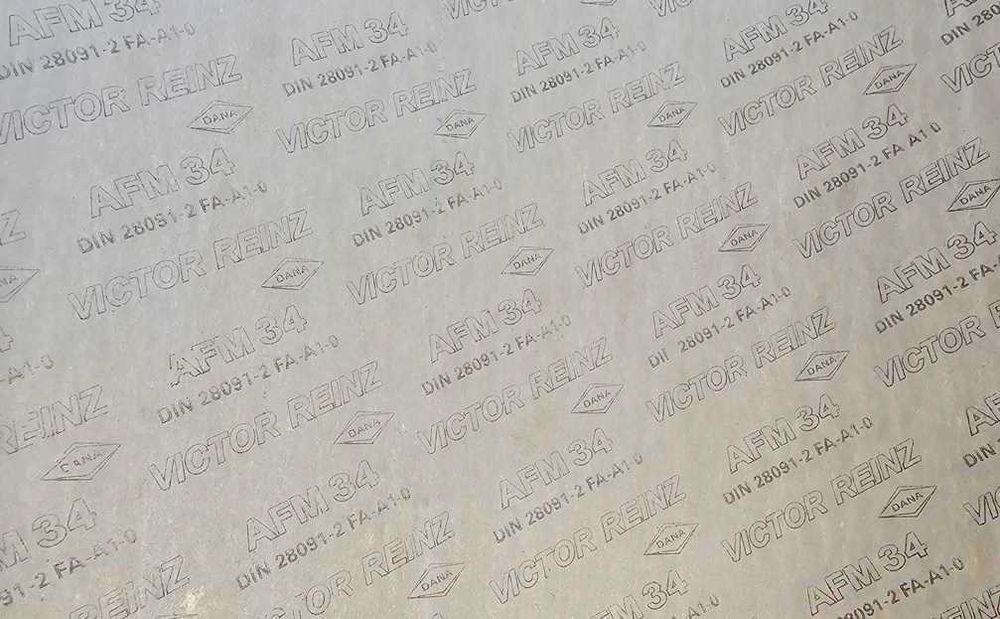 AFM 34
DIN 28091-2 FA-A1-0
VICTOR REINZ
DANA
AFM 34
DIN 28091-2 FA-A1-0
VICTOR REINZ
DANA
AFM 34
DIN 28091-2 FA-A1-0
VICTOR REINZ
DANA
AFM 34
DIN 28091-2 FA-A1-0
VICTOR REINZ
DANA
AFM 34
DIN 28091-2 FA-A1-0
VICTOR REINZ
DANA
AFM 34
DIN 28091-2 FA-A1-0
VICTOR REINZ
DANA
AFM 34
DIN 28091-2 FA-A1-0
VICTOR REINZ
DANA
AFM 34
DIN 28091-2 FA A1 0
VICTOR REINZ
DANA
DANA
AFM 34
DIN 28091-2 FA-A1-0
VICTOR REINZ
DANA
AFM 34
DIN 28091-2 FA-A1-0
VICTOR REINZ
DANA
AFM 34
DIN 28091-2 FA-A1-0
VICTOR REINZ
DANA
AFM 34
DIN 28091-2 FA-A1-0
VICTOR
-A1-0
REINZ
DANA
AFM 34
DIN 28091-2 FA-A1-0
VICTOR REINZ
DANA
AFM 34
DIN 28091-2 FA-A1-0
VICTOR REINZ
DANA
AFM 34
DIN 28091-2 FA-A1-0
VICTOR REINZ
DANA
DIN
M 34
91-2 FA-A1-0
REINZ
AFM 34
28091-2 FA-A1-0